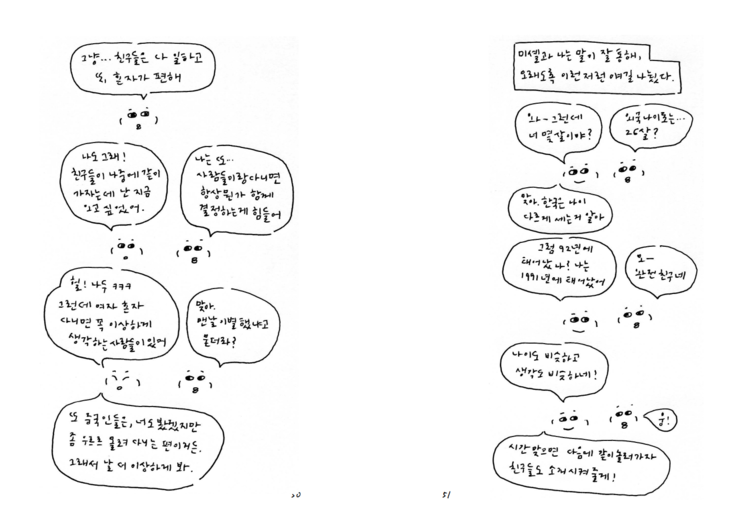 그냥... 친구들은 다 일하고
또, 혼자가 편해
나도 그래!
친구들이 나중에 같이
가자는데 난 지금
오고 싶었어.
나는 또...
사람들이랑 다니면
항상 뭔가 함께
결정하는게 힘들어
헐! 나두 ㅋㅋㅋ
그런데 여자 혼자
다니면 꼭 이상하게
생각하는 사람들이 있어
맞아.
맨날 이별했냐고
묻더라?
또 중국인들은, 너도 봤겠지만
좀 우르르 몰려 다니는 편이거든.
그래서 날 더 이상하게 봐.
50
미셸과 나는 말이 잘 통해,
오래도록 이런저런 얘길 나눴다.
와~ 그런데
너 몇 살이야?
외국 나이로는...
26살?
맞아. 한국은 나이
다르게 세는거 알아
그럼 92년에
태어났나? 나는
1991년에 태어났어
오~
완전 친구네
나이도 비슷하고
생각도 비슷하네!
웅!
시간 맞으면 다음에 같이 놀러가자
친구들도 소개시켜 줄게!
51